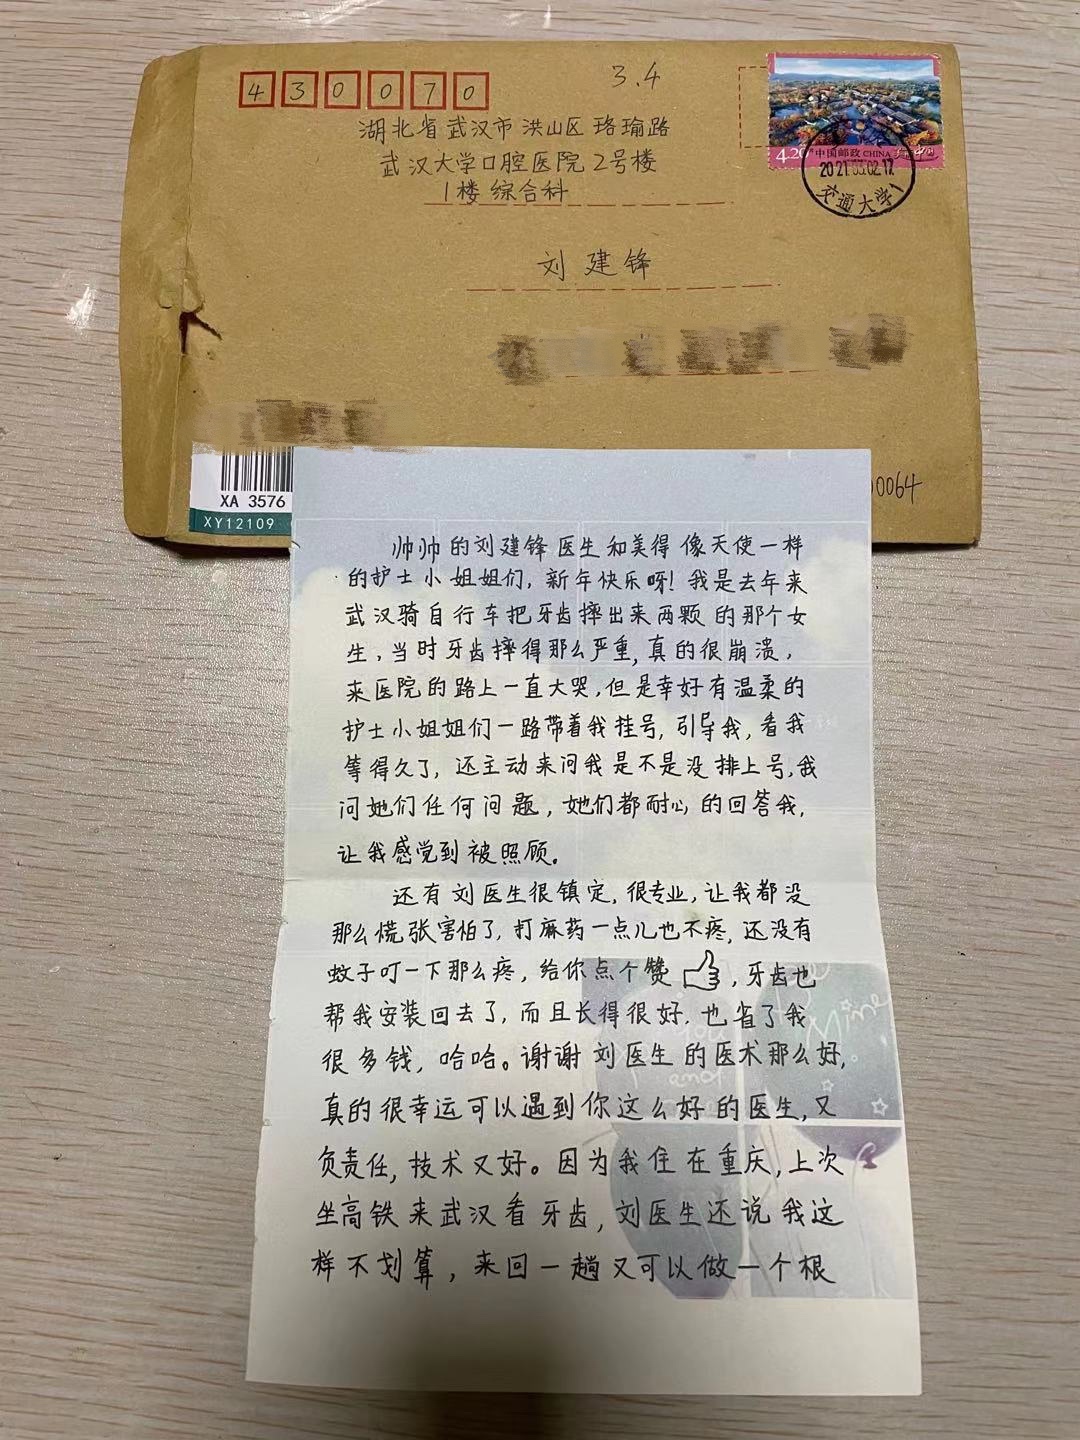 430070
3.4
湖北省武汉市洪山区珞瑜路
武汉大学口腔医院2号楼
1楼综合科
刘建锋
4.20
中国邮政 CHINA
2021.03.02.17
交通大学1
XA 3576
XY12109
0064
帅帅的刘建锋医生和美得像天使一样
的护士小姐姐们，新年快乐呀！我是去年来
武汉骑自行车把牙齿摔出来两颗的那个女
生，当时牙齿摔得那么严重，真的很崩溃，
来医院的路上一直大哭，但是幸好有温柔的
护士小姐姐们一路带着我挂号，引导我，看我
等得久了，还主动来问我是不是没排上号，我
问她们任何问题，她们都耐心的回答我，
让我感觉到被照顾。
还有刘医生很镇定，很专业，让我都没
那么慌张害怕了，打麻药一点儿也不疼，还没有
蚊子叮一下那么疼，给你点个赞，牙齿也
帮我安装回去了，而且长得很好，也省了我
很多钱，哈哈。谢谢刘医生的医术那么好，
真的很幸运可以遇到你这么好的医生，又
负责任，技术又好。因为我住在重庆，上次
坐高铁来武汉看牙齿，刘医生还说我这
样不划算，来回一趟又可以做一个根
Mine